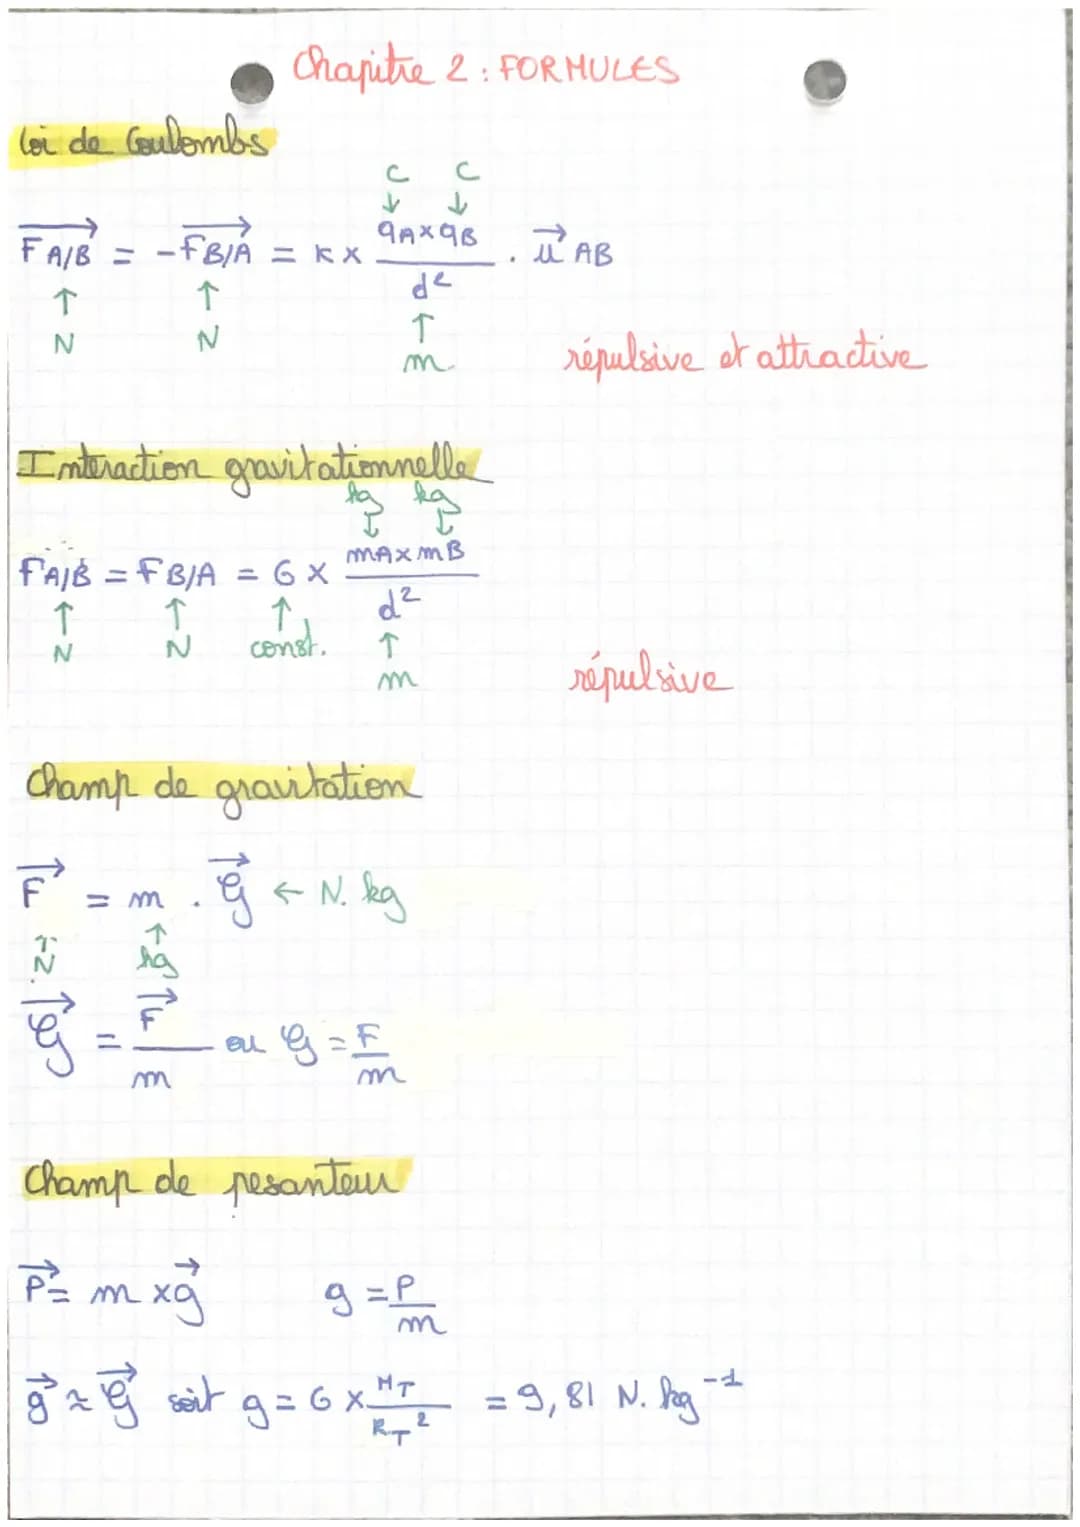 Chapitre 2 : FORMULES
Loi de Coulombs
C C
↓ ↓
F A/B = -F B/A = K x qA x qB / d² . u AB
↑ ↑ ↑
N N m
répulsive et attractive
Interaction gravitationnelle
kg kg
↓ ↓
FA/B = F B/A = G x mA x mB / d²
↑ ↑ ↑ ↑
N N const. m
répulsive
Champ de gravitation
F = m . G ← N. kg
↑ ↑
N kg
G = F / m ou G = F / m
Champ de pesanteur
P = m x g g = P / m
g ≈ G soit g = G x MT / RT² = 9,81 N. kg⁻¹